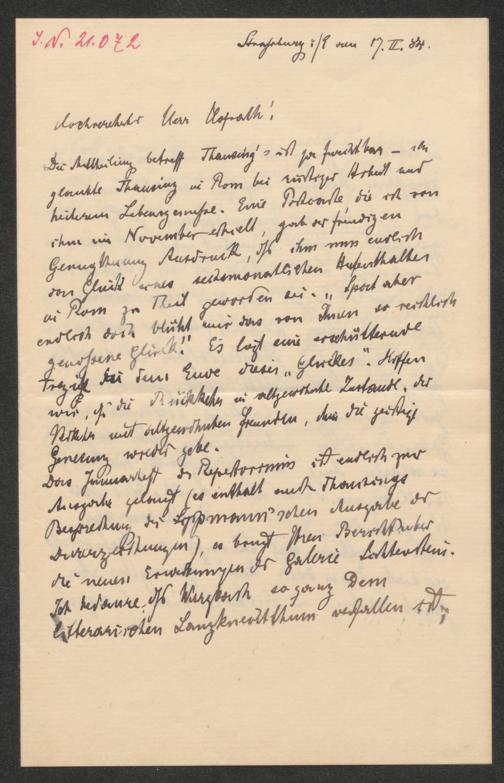 J. N. 21.072
Strassburg i/E am 17. II. 84.
Hochverehrter Herr Hofrath!
Die Mittheilung betreff Thausing's ist ja furchtbar – ich
glaubte Thausing in Rom bei rüstiger Arbeit und
heiterem Lebensgenusse. Eine Postcarte die ich von
ihm im November erhielt, gab der freudigen
Genugthuung Ausdruck, dß ihm nun endlich
das Glück eines sechsmonatlichen Aufenthaltes
in Rom zu Theil geworden sei. „Spät aber
endlich doch blüht mir das von Ihnen so reichlich
genossene Glück!" Es liegt eine erschütternde
Tragik in dem Ende dieses „Glückes". Hoffen
wir, dß die Rückkehr in altgewohnte Zustände, der
Verkehr mit altgewohnten Freunden, ihm die geistige
Genesung wieder gebe.
Das Januarheft des Repertoriums ist endlich zur
Ausgabe gelangt (es enthält auch Thausings
Besprechung der Lippmann'schen Ausgabe der
Dürerzeichnungen), es bringt Ihren Bericht über
die neuen Erwerbungen der Galerie Lichtenstein.
Ich bedaure, dß Wurzbach so ganz dem
litterarischen Lanzknechtthum verfallen ist,